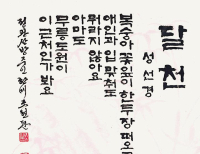 달천
성선경
복숭아 꽃잎이 한두 장 떠오
애인과 입맞춰도
뭐라지 않아요
아마도
무릉도원이
이 근처인가 봐요